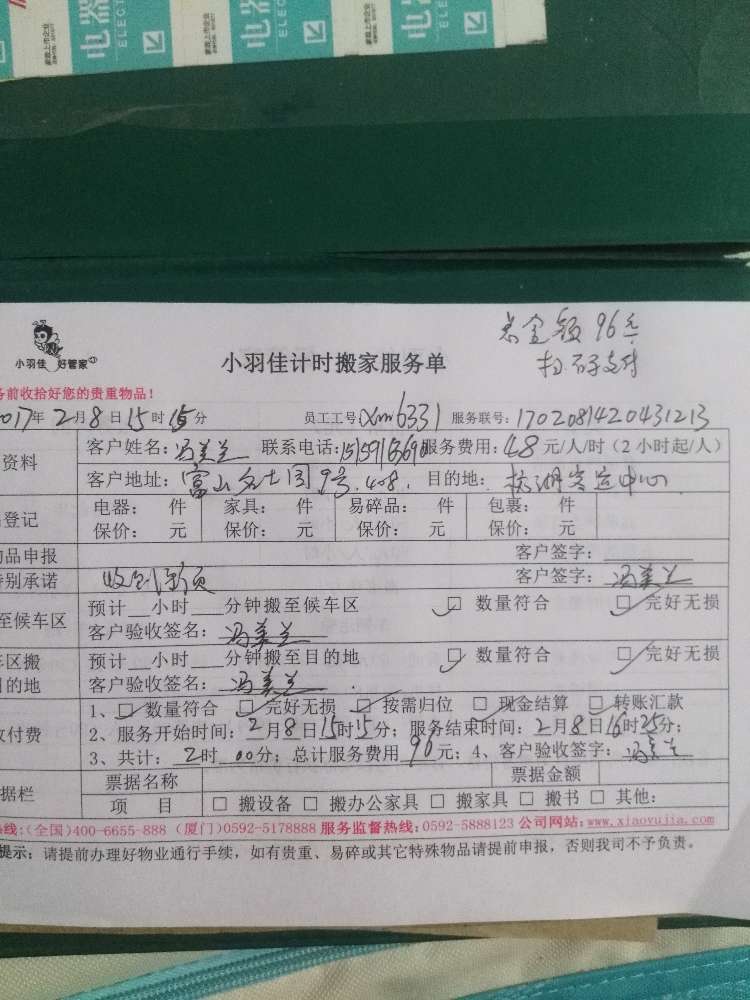 电器
ELECT
电器
ELECT
电器
总金额96元
扫码支付
小羽佳 好管家
小羽佳计时搬家服务单
务前收拾好您的贵重物品!
017年2月8日15时15分 员工工号:xm6331 服务联号:1702081420431213
资料 客户姓名:冯美兰 联系电话: 服务费用:48元/人/时(2小时起/人)
客户地址:富山名士园9号.408. 目的地: 中心
登记 电器: 件 家具: 件 易碎品: 件 包裹: 件
保价: 元 保价: 元 保价: 元 保价: 元
物品申报 客户签字:
特别承诺 客户签字:冯美兰
至候车区 预计 小时 分钟搬至候车区 ☑ 数量符合 ☑ 完好无损
客户验收签名:冯美兰
车区搬 预计 小时 分钟搬至目的地 ☑ 数量符合 ☑ 完好无损
目的地 客户验收签名:冯美兰
收付费 1、☑ 数量符合 ☑ 完好无损 ☑ 按需归位 ☑ 现金结算 ☑ 转账汇款
2、服务开始时间:2月8日15时15分;服务结束时间:2月8日16时25分;
3、共计:2时00分;总计服务费用96元;4、客户验收签字:冯美兰
据栏 票据名称 票据金额
项 目 □ 搬设备 □ 搬办公家具 □ 搬家具 □ 搬书 □ 其他:
热线:(全国)400-6655-888 (厦门)0592-5178888 服务监督热线:0592-5888123 公司网站:www.xiaoyujia.com
提示:请提前办理好物业通行手续,如有贵重、易碎或其它特殊物品请提前申报,否则我司不予负责。